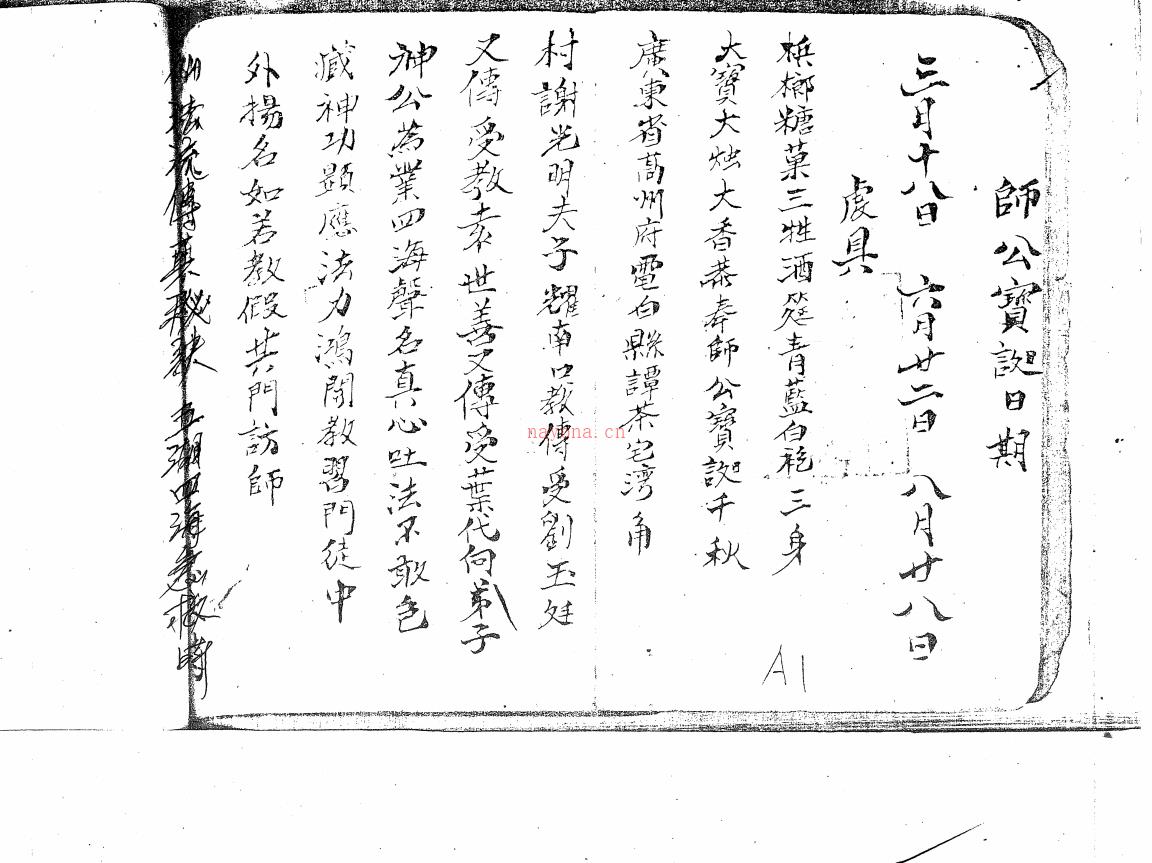 師公寶誕日期
三月十八日 六月廿二日 八月廿八日
虔具
檳榔糖菓三牲酒筵青藍白袍三身
大寶大燭大香恭奉師公寶誕千秋
廣東省高州府電白縣譚茶宅湾角
村謝光明夫子耀南口教傳受劉玉廷
又傳受教袁世善又傳受葉代向弟子
神公為業四海聲名真心吐法不敢色
藏神功顕應法力鴻開教習門徒中
外揚名如若教假共門訪師
法 傳真秘訣 五湖四海急救時
nayona.cn
A1